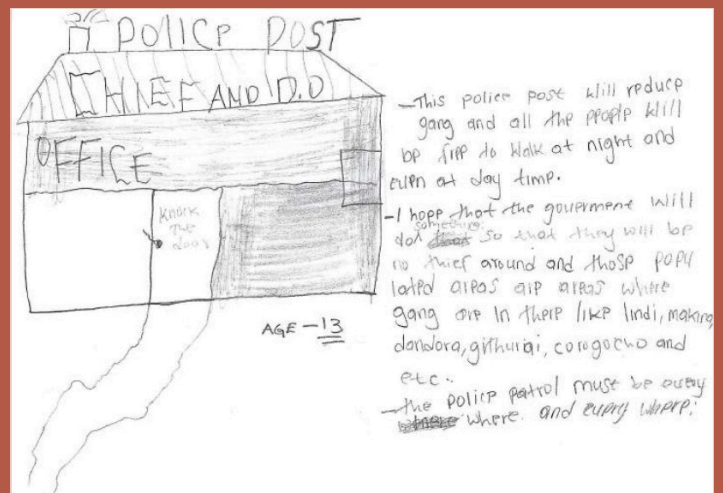 POLICE POST
CHIEF AND D.O
OFFICE
Knock
The
door
AGE - 13
- This police post will reduce
gang and all the people will
be free to walk at night and
even at day time.
- I hope that the gouverment will
do something so that they will be
no thief around and those popu
lated areas are areas where
gang are in there like lindi, making,
dandora, githuriai, corogocho and
etc..
- the police patrol must be every
where. and every where.